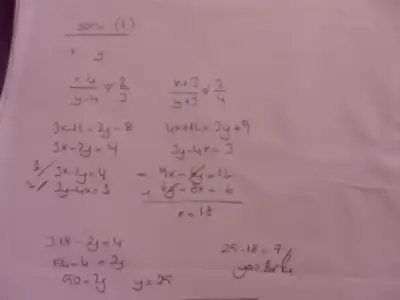 x y
x-4/y-4 = 2/3 x+3/y+3 = 3/4
3x-12=2y-8 4x+12=3y+9
3x-2y=4 3y-4x=3
3/ 3x-2y=4 = 9x-6y=12
2/ 3y-4x=3 + 6y-8x=6
x=18
3.18-2y=4 25-18=7
54-4=2y
50=2y y=25